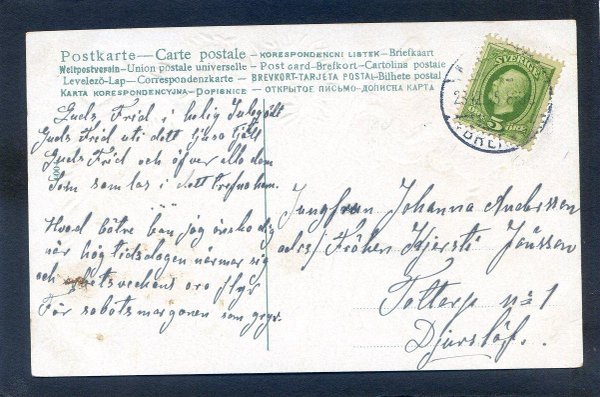 Postkarte — Carte postale — KORESPONDENCNI LISTEK — Briefkaart
Weltpostverein — Union postale universelle — Post card — Brefkort — Cartolina postale
Levelező-Lap — Correspondenzkarte — BREVKORT — TARJETA POSTAL — Bilhete postal
KARTA KORESPONDENCYJNA — DOPISNICE — ОТКРЫТОЕ ПИСЬМО — ДОПИСНА КАРТА
SVERIGE
5 ÖRE
Guds Frid i helig
Guds Frid uti ditt ljusa tjäll
Guds Frid och öfver alla dem
Som samlas i ditt trefna hem.
Hvad bätre kan jag önska dig
när hög tidsdagen närmar sig
och arbetsveckans oro flyr
För sabatsmorgonen som gryr.
Jungfrun Johanna Andersson
adrs/ Fröken Kjersti Jönsson
Tottarp no 1
Djurslöf.